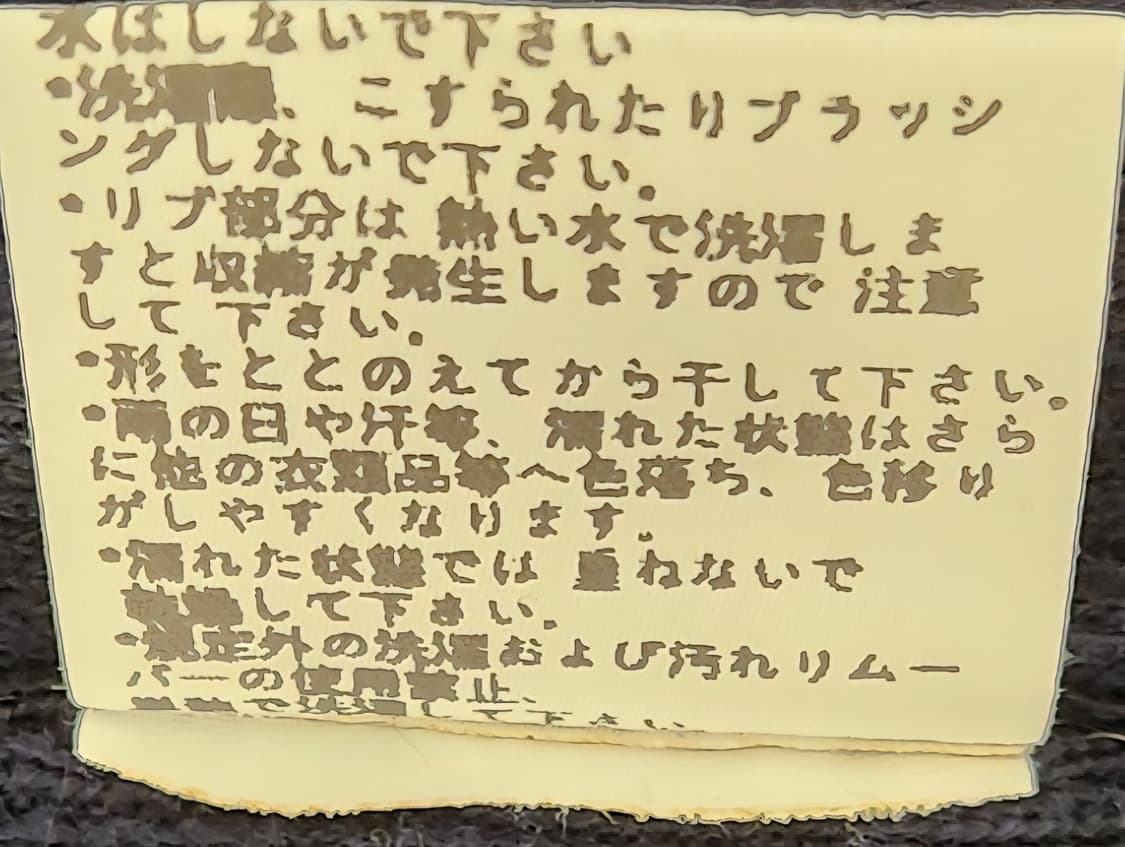 水はしないで下さい
・洗濯、こすられたりブラッシ
ングしないで下さい。
・リブ部分は 熱い水で洗濯しま
すと収縮が発生しますので 注意
して 下さい。
・形をととのえてから干して下さい。
・雨の日や汗等、濡れた状態はさら
に他の衣類品等へ色落ち、色移り
がしやすくなります。
・濡れた状態では 重ねないで
乾燥して下さい。
定外の洗濯および汚れリムー
バーの使用禁止、
で洗濯して下さい